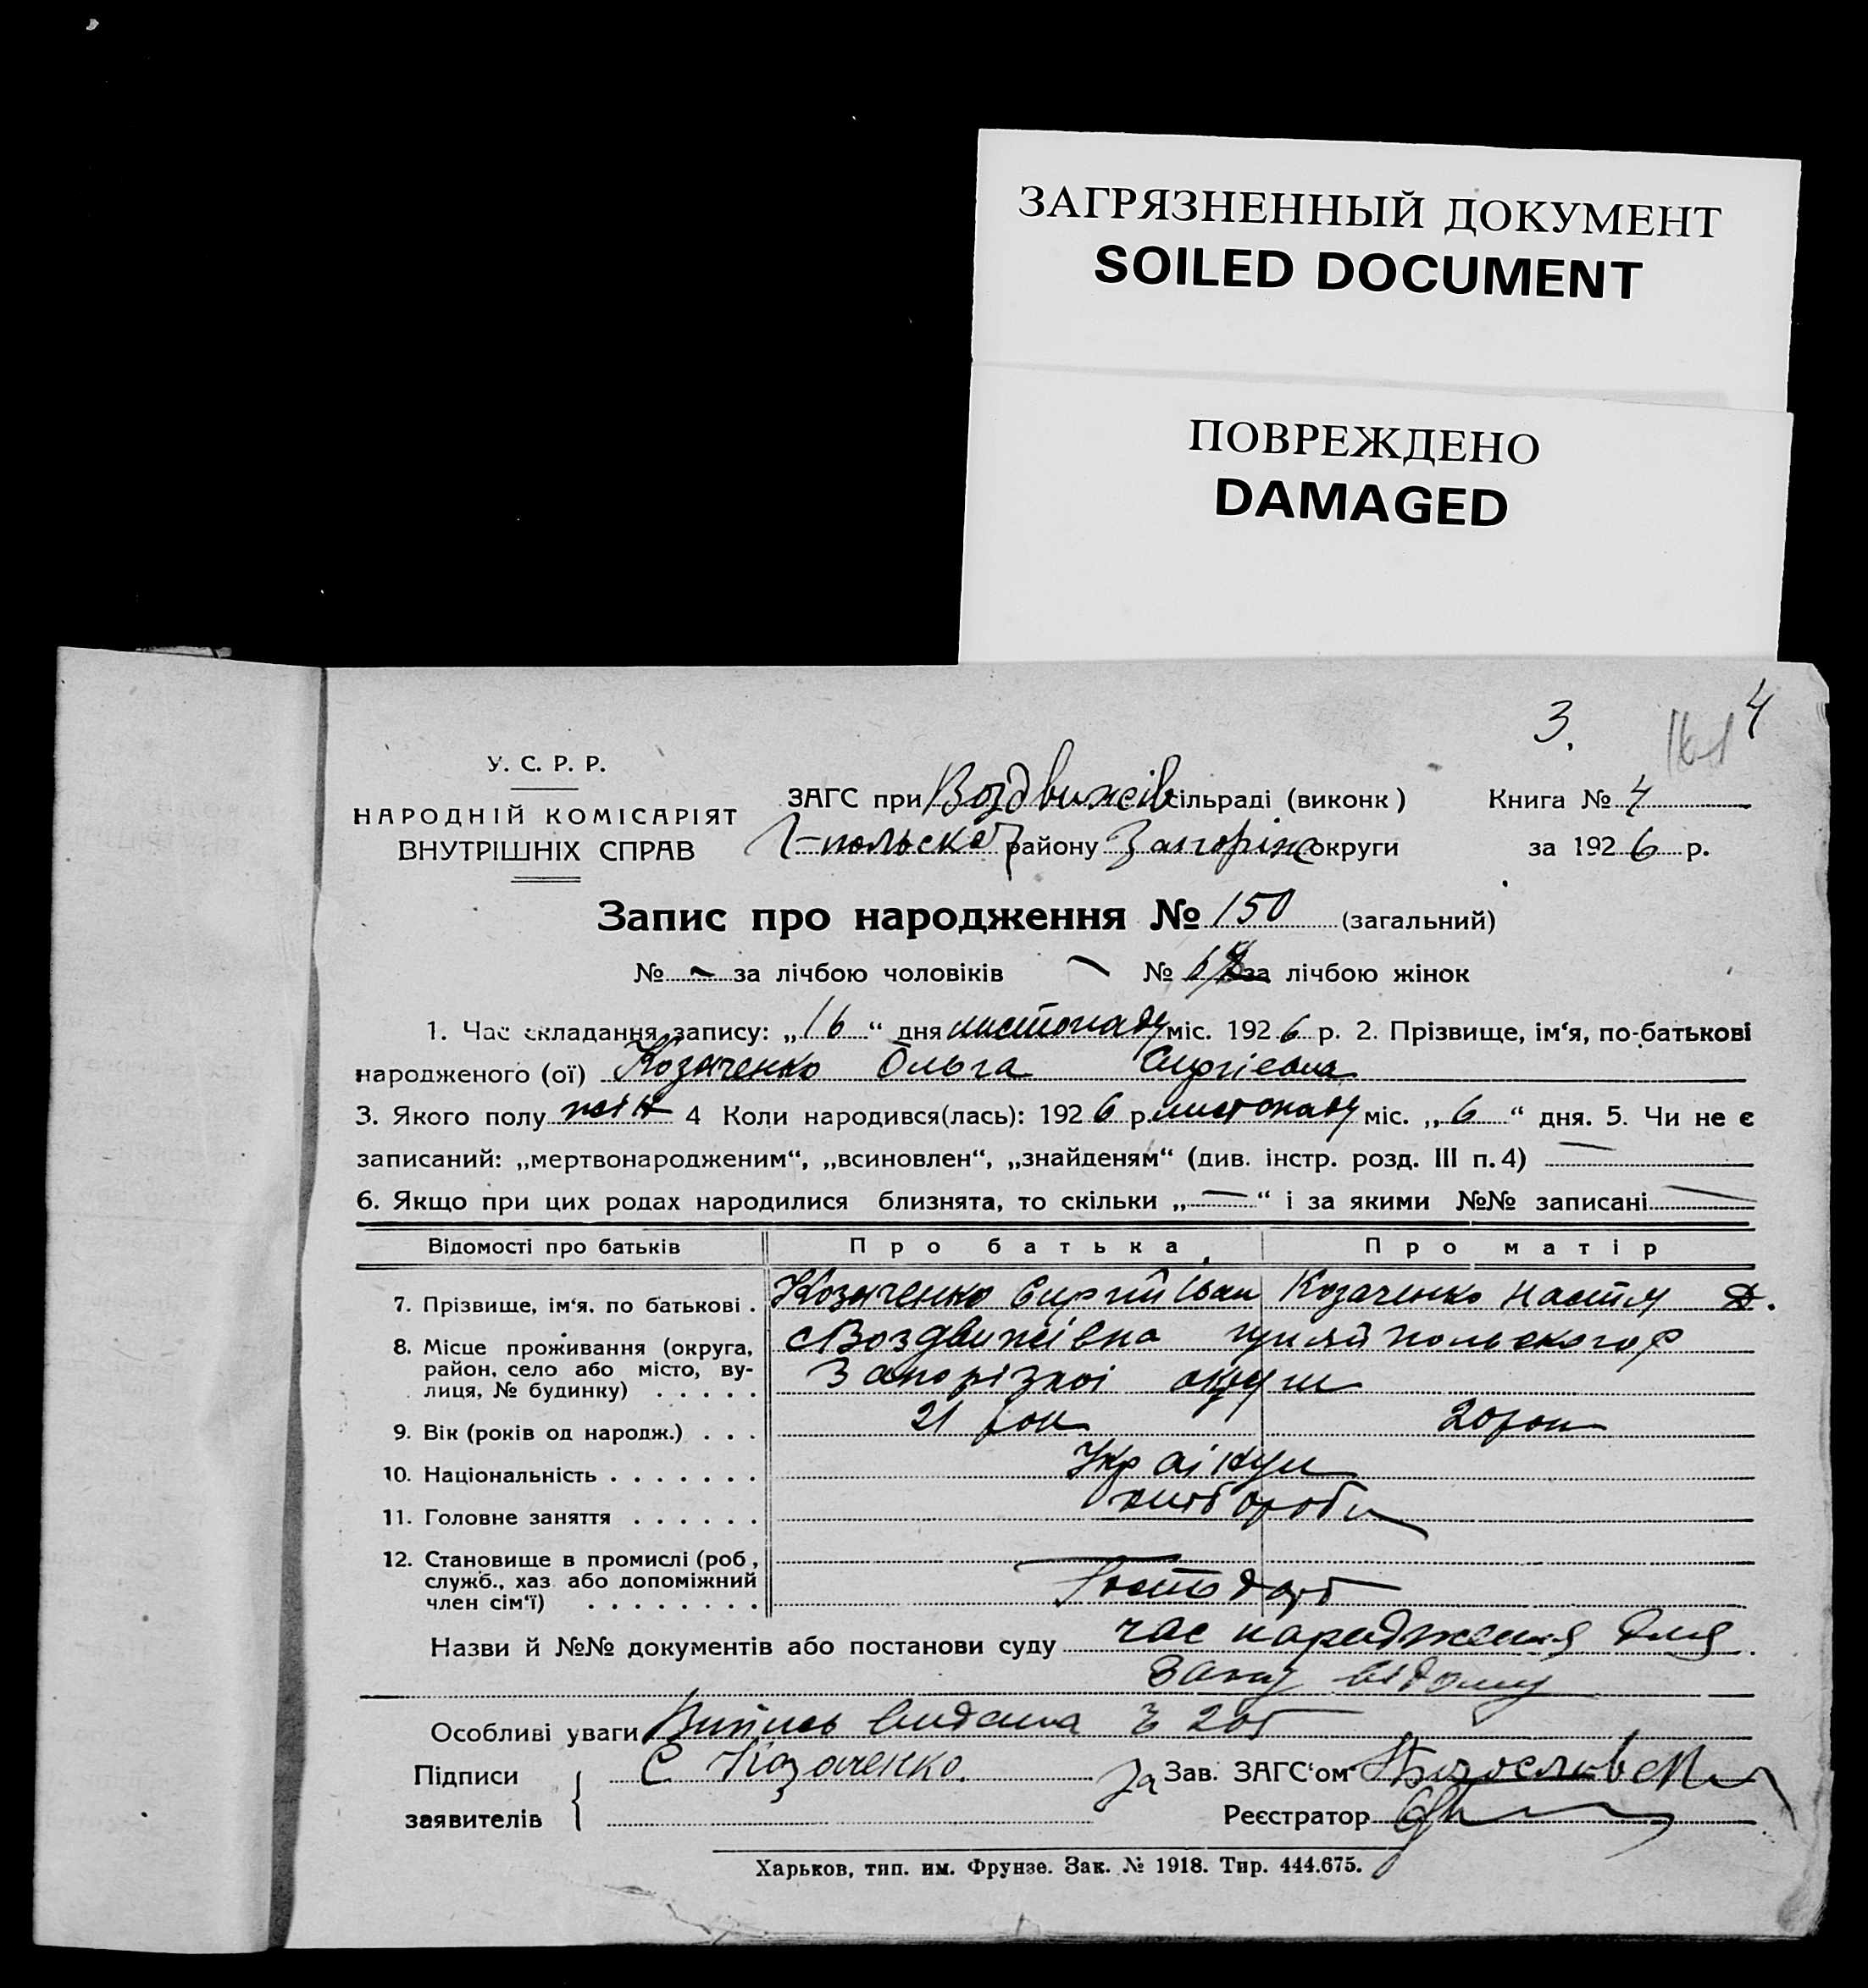 ЗАГРЯЗНЕННЫЙ ДОКУМЕНТ
SOILED DOCUMENT
ПОВРЕЖДЕНО
DAMAGED
3.
161
4
У. С. Р. Р.
НАРОДНІЙ КОМІСАРІЯТ
ВНУТРІШНІХ СПРАВ
ЗАГС при Воздвижів сільраді (виконк) Книга № 4
Г-польск району Запоріж округи за 1926 р.
Запис про народження № 150 (загальний)
№ за лічбою чоловіків № за лічбою жінок
1. Час складання запису: „16“ дня листопаду міс. 1926 р. 2. Прізвище, ім‘я, по-батькові
народженого (ої) Козаченко Ольга Сиргіевна
3. Якого полу жін 4 Коли народився(лась): 1926 р. листопаду міс. „6“ дня. 5. Чи не є
записаний: „мертвонародженим“, „всиновлен“, „знайденям“ (див. інстр. розд. III п. 4) —
6. Якщо при цих родах народилися близнята, то скільки „—“ і за якими №№ записані —
Відомості про батьків Про батька Про матір
7. Прізвище, ім‘я, по батькові . Козаченко Сиргій Іван Козаченко Настя Д.
8. Місце проживання (округа, с Воздвижівка Гуляйпольского р
район, село або місто, ву-
лиця, № будинку) . . . . . Запорізкоі округи
9. Вік (років од народж.) . . . 21 рок 20 рок
10. Національність . . . . . . . Украінци
11. Головне заняття . . . . . . хлібороби
12. Становище в промислі (роб.,
служб., хаз. або допоміжний
член сім‘ї) . . . . . . . . Господар
Назви й №№ документів або постанови суду час народження для
загсу відому
Особливі уваги Випись видана
Підписи С. Козаченко. За Зав. ЗАГС‘ом
заявителів Реєстратор
Харьков, тип. им. Фрунзе. Зак. № 1918. Тир. 444.675.